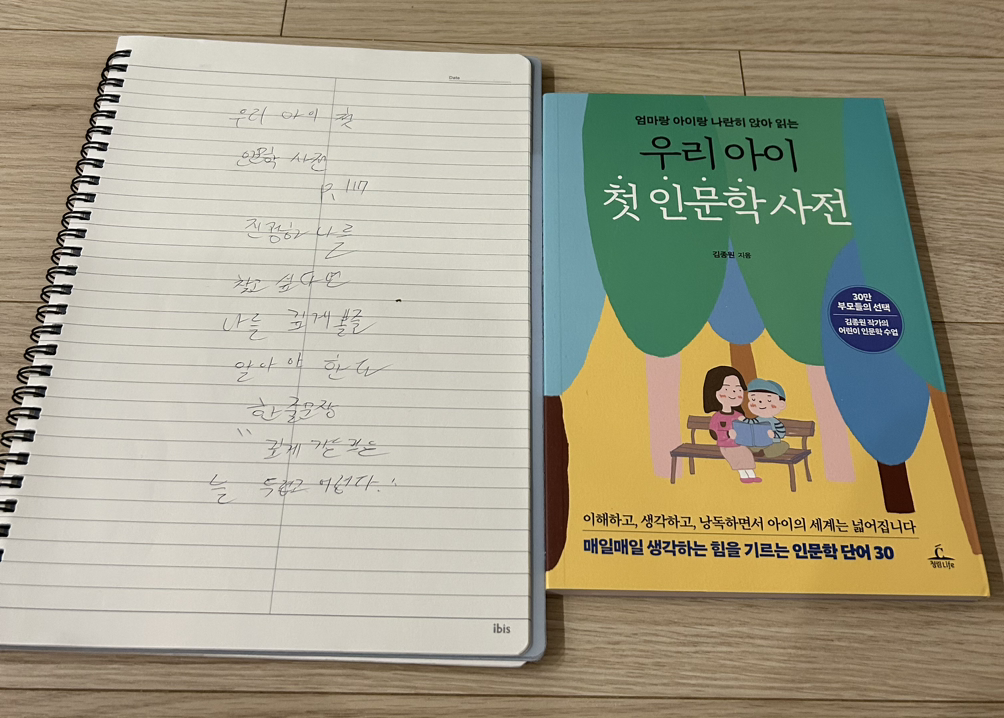 Date
우리 아이 첫
인문학 사전
P. 117
진정한 나를
찾고 싶다면
나를 깊게 볼줄
알아야 한다
한줄문장
깊게
늘 두렵고 어렵다."
ibis
엄마랑 아이랑 나란히 앉아 읽는
우리 아이
첫 인문학 사전
김종원 지음
30만
부모들의 선택
김종원 작가의
어린이 인문학 수업
이해하고, 생각하고, 낭독하면서 아이의 세계는 넓어집니다
매일매일 생각하는 힘을 기르는 인문학 단어 30
청림Life